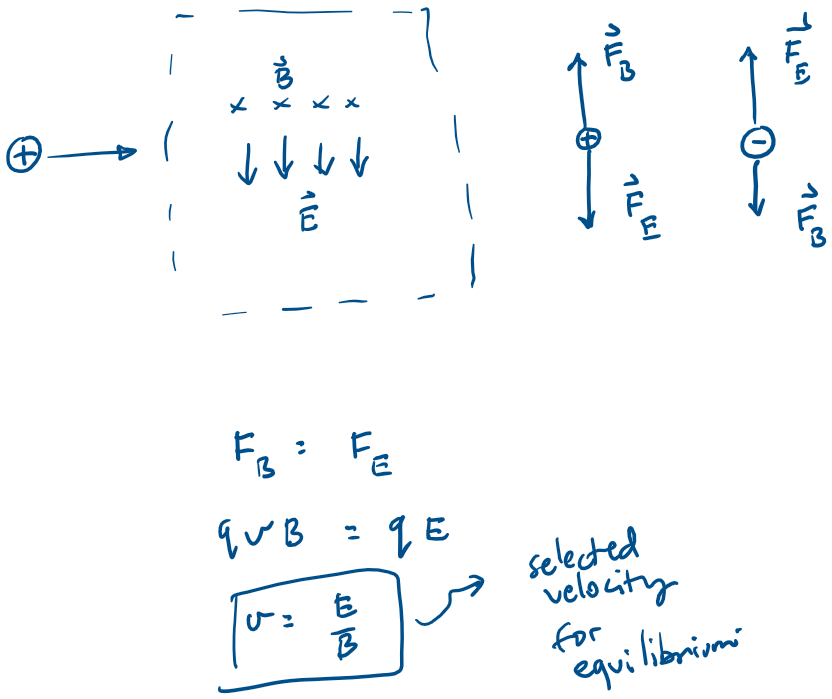 B⃗
× × × ×
E⃗
+
F⃗_B
+
F⃗_E
F⃗_E
−
F⃗_B
F_B = F_E
qvB = qE
v = E/B
selected
velocity
for
equilibrium